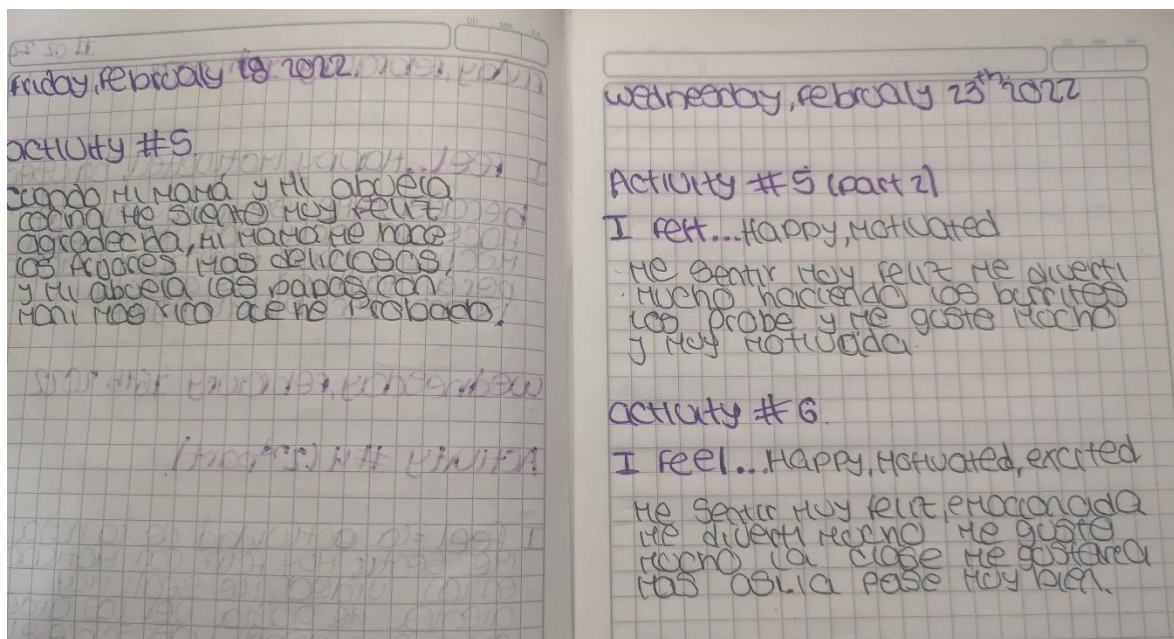 Friday, Februaly 18 2022
activity #5
cuando mi mamá y mi abuela
cocina me siento muy feliz
agredecida, mi mama me hace
los Frijoles mas deliciosos,
y mi abuela las papas con
mani mas rico ace he probado.
Wednesday, Februaly 23th 2022
Activity #5 (part 2)
I felt... Happy, Motivated
Me sentir muy feliz me diverti
mucho haciendo los burritos
los probe y me gusto mucho
y muy motivada.
activity #6.
I Feel... Happy, Motivated, excited
Me sentir muy feliz, emocionada
me diverti mucho me gusto
mucho la clase me gustarea
mas pase muy bien.